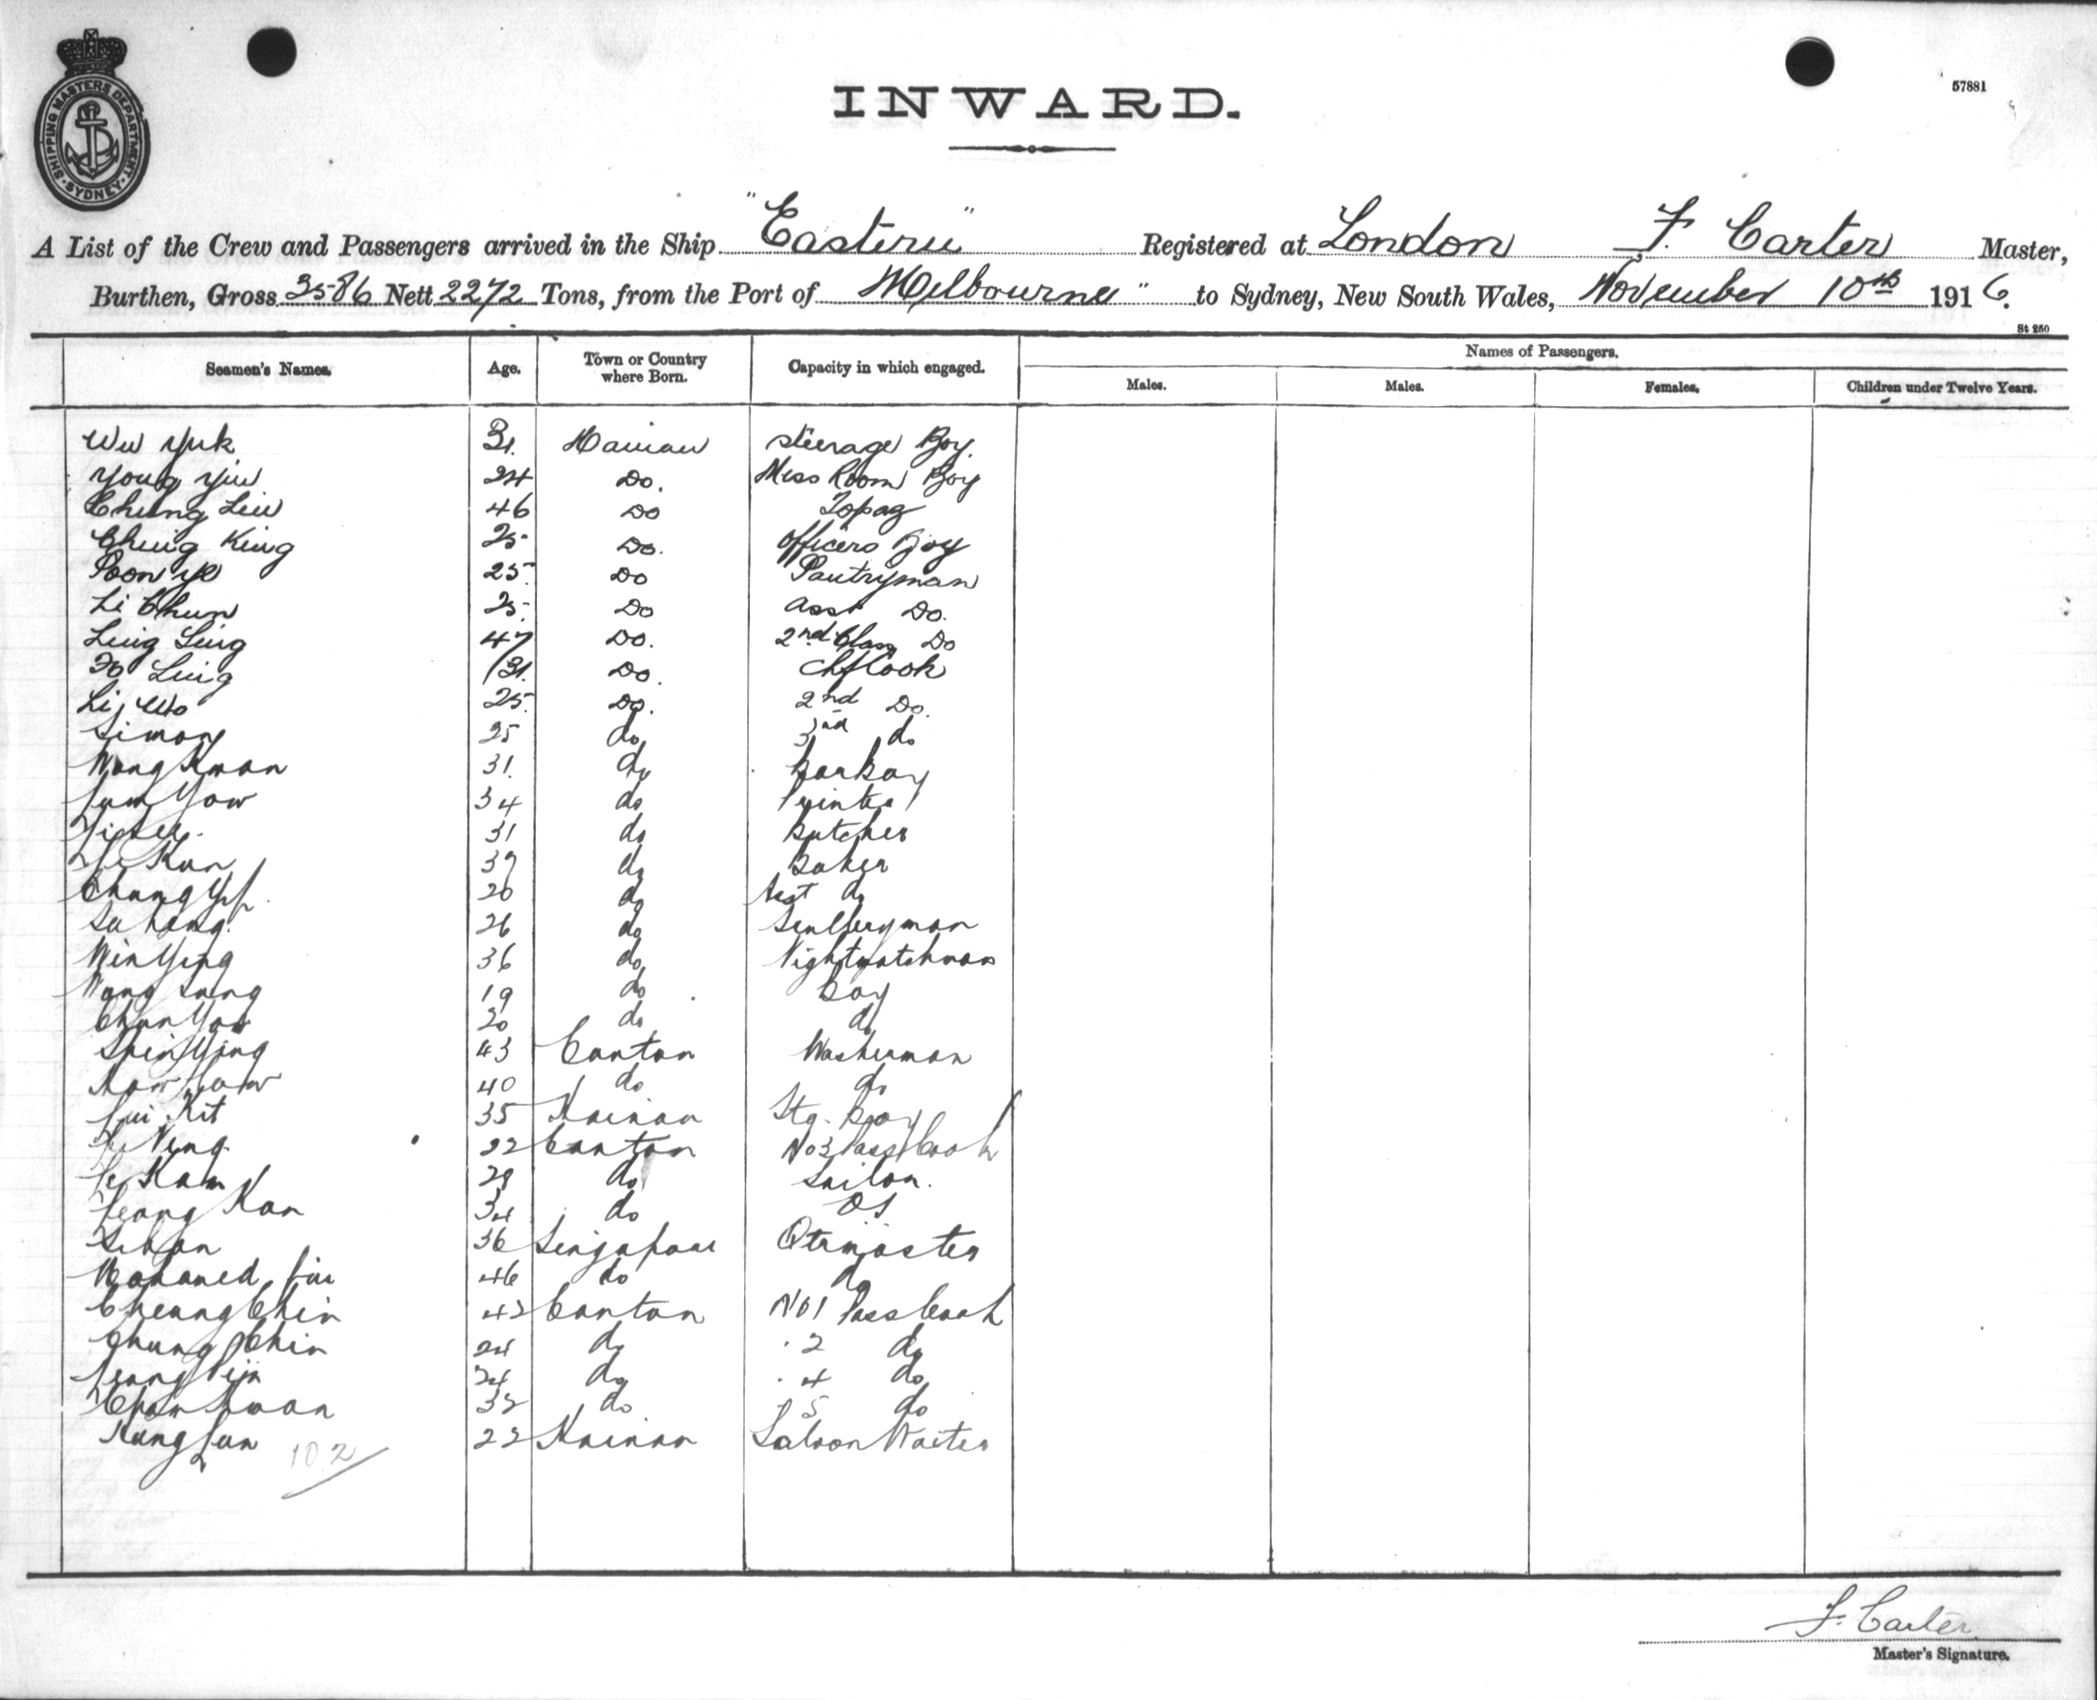 SHIPPING MASTERS DEPARTMENT
SYDNEY
57881
INWARD.
A List of the Crew and Passengers arrived in the Ship "Eastern" Registered at London F. Carter Master,
Burthen, Gross 3586 Nett 2272 Tons, from the Port of Melbourne" to Sydney, New South Wales, November 10th 1916.
St 250
Seamen's Names. Age. Town or Country where Born. Capacity in which engaged. Names of Passengers.
Males. Males. Females. Children under Twelve Years.
Wu Yuk 31. Hainan Steerage Boy.
Young Yiu 24 Do. Mess Room Boy
Chung Liu 46 Do Topaz
Ching King 25 Do. Officers Boy
Poon Ye 25. Do Pantryman
Li Chun 25. Do Asst Do.
Ling Sing 47 Do. 2nd Class Do
Fo Ling 31. Do. Chf Cook
Li Wo 25. Do. 2nd Do.
Simon 25 do 3rd do
Wong Kwan 31. do barboy
Sum Yow 34 do Printer
31 do butcher
Kun 39 do baker
Chung Yip. 20 do Asst do
26 do Sculleryman
Win Ying 36 do Nightwatchman
Wong Sung 19 do boy
Chun Yow 20 do do
Shin Ying 43 Canton Washerman
40 do do
Lui Kit 35 Hainan Stg. boy
Ning 22 Canton No 3 Pass Cook
Kam 28 do Sailor.
Leong Kan 34 do OS
36 Singapore Qtrmaster
Mohamed 46 do do
Cheung Chin 42 Canton No 1 Pass Cook
Chung Chin 24 do . 2 do
Leong 24 do . 4 do
Chan Kwan 32 do 5 do
Kung Lun 22 Hainan Saloon Waiter
102
F. Carter
Master's Signature.